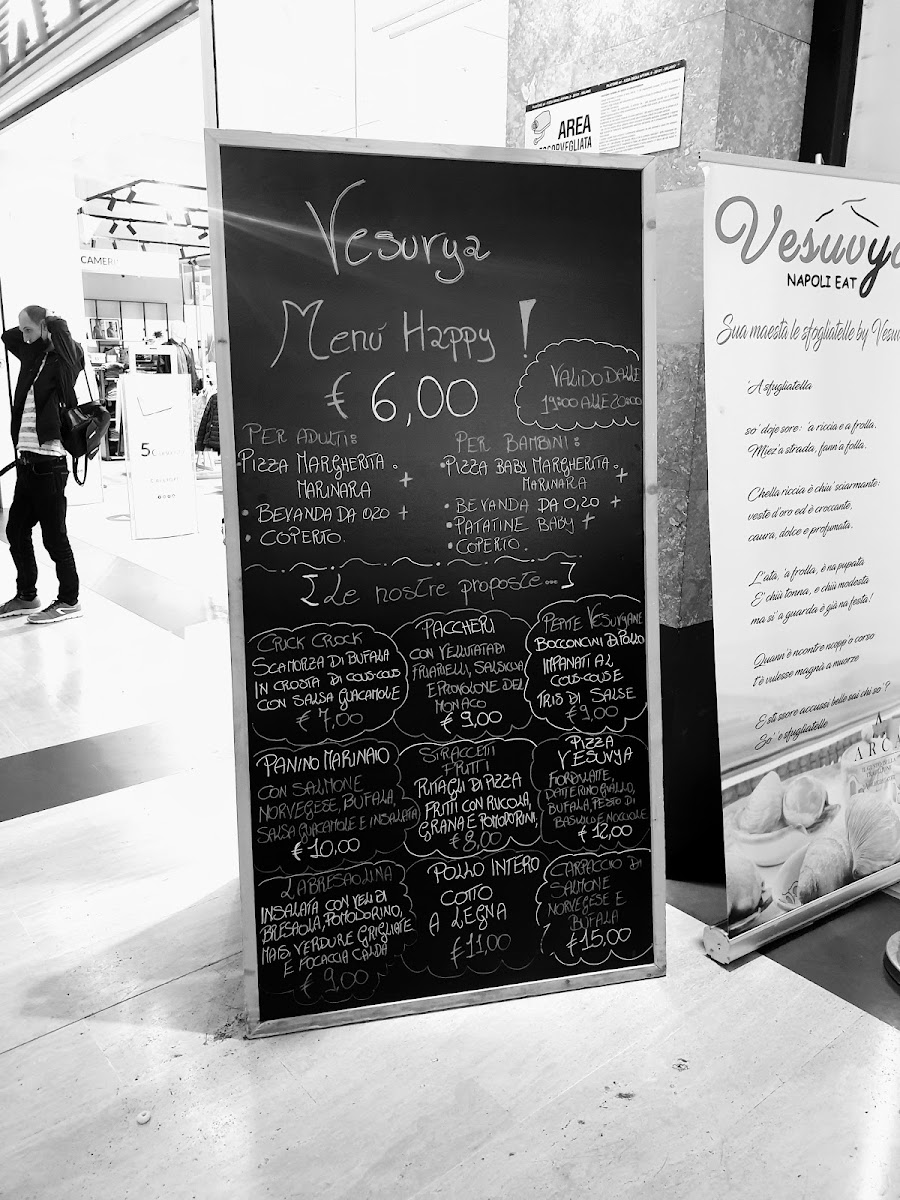 CAMER
AREA
Vesuvya
Menú Happy !
€ 6,00
VALIDO DALLE
19:00 ALLE 20:00
PER ADULTI:
• PIZZA MARGHERITA o
MARINARA +
• BEVANDA DA 0,20 +
• COPERTO.
PER BAMBINI:
• PIZZA BABY MARGHERITA o
MARINARA +
• BEVANDA DA 0,20 +
• PATATINE BABY +
• COPERTO.
[Le nostre proposte...]
CRICK CROCK
SCAMORZA DI BUFALA
IN CROSTA DI COUS-COUS
CON SALSA GUACAMOLE
€ 7,00
PACCHERI
CON VELLUTATA DI
FRIARIELLI, SALSICCIA
E PROVOLONE DEL
MONACO
€ 9,00
PEPITE VESUVYANE
BOCCONCINI DI POLLO
IMPANATI AL
COUS-COUS E
TRIS DI SALSE
€ 9,00
PANINO MARINAIO
CON SALMONE
NORVEGESE, BUFALA,
SALSA GUACAMOLE E INSALATA
€ 10,00
STRACCETTI
FRITTI
RITAGLI DI PIZZA
FRITTI CON RUCOLA,
GRANA E POMODORINI
€ 8,00
PIZZA
VESUVYA
FIORDILATTE,
DATTERINO GIALLO,
BUFALA, PESTO DI
BASILICO E NOCCIOLE
€ 12,00
LA BRESAOLINA
INSALATA CON VELI DI
BRESAOLA, POMODORINO,
MAIS, VERDURE GRIGLIATE
E FOCACCIA CALDA
€ 9,00
POLLO INTERO
COTTO
A LEGNA
€ 11,00
CARPACCIO DI
SALMONE
NORVEGESE E
BUFALA
€ 15,00
Vesuvya
NAPOLI EAT
Sua maestà le sfogliatelle by Vesu
'A sfugliatella
so' doje sore: 'a riccia e a frolla.
Miez'a strada, fann'a folla.
Chella riccia è chiu' sciarmante:
veste d'oro ed è croccante,
caura, dolce e profumata.
L'ata, 'a frolla, è na pupata
E' chiù tonna, e chiù modesta
ma si 'a guarda è già na festa!
Quann'e ncontre ncopp'o corso
t'è vulesse magnà a muorze
E sti ssore accussi belle sai chi so'?
So' e sfugliatelle
ARCA